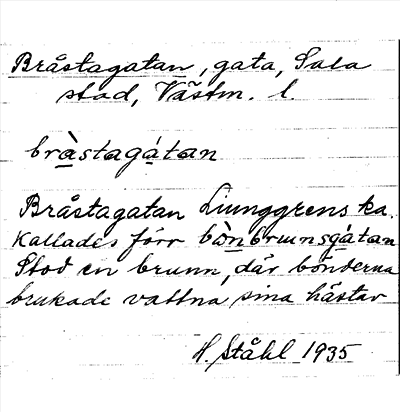 Bråstagatan, gata, Sala
stad, Västm. l.
bràstagátan
Bråstagatan Ljunggrenska.
Kallades förr bònbrunsgátan
Stod en brunn, där bönderna
brukade vattna sina hästar
H. Ståhl 1935